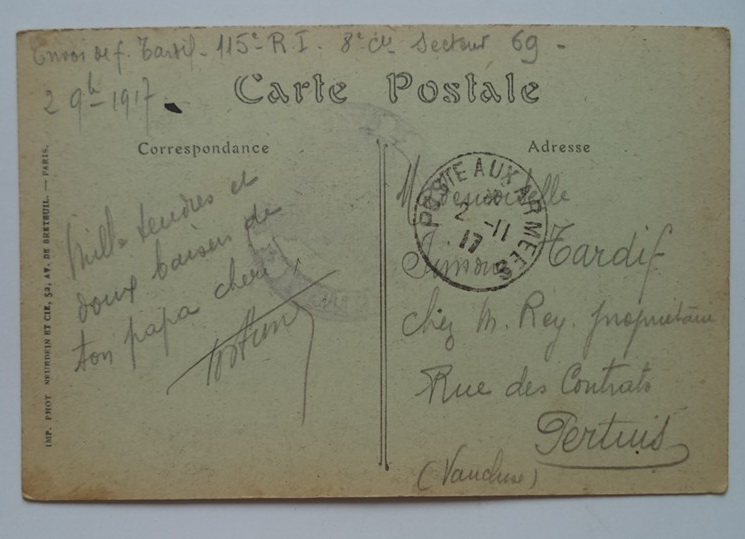 Envoi de f. Tardif - 115e R.I. 8e Cie Secteur 69 -
2 9b - 1917
Carte Postale
Correspondance
Adresse
Mille tendres et
doux baisers de
ton papa chéri
Mademoiselle
Simone Tardif
chez M. Rey, propriétaire
Rue des Contrats
Pertuis
(Vaucluse)
POSTE AUX ARMEES
2 -11
17
IMP. PHOT. NEURDEIN ET CIE, 52, AV. DE BRETEUIL. — PARIS.